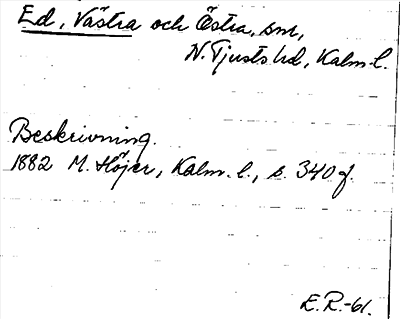 Ed, Västra och Östra, sn,
N. Tjusts hd, Kalm. l.
Beskrivning.
1882 M. Höjer, Kalm. l., s. 340 f.
E.R.-61.